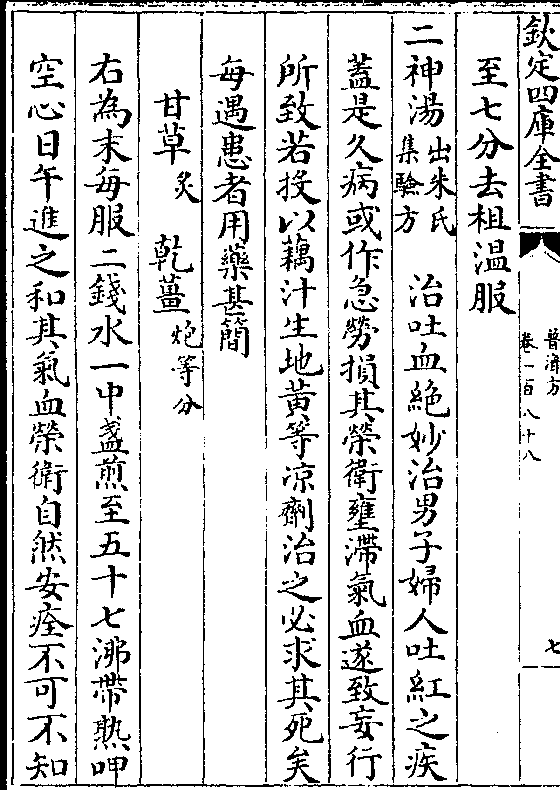 欽定四庫全書
普濟方
卷一百八十八
七
至七分去柤溫服
二神湯出朱氏集驗方 治吐血絶妙治男子婦人吐紅之疾
蓋是久病或作急勞損其榮衛壅滯氣血遂致妄行
所致若投以藕汁生地黃等凉劑治之必求其死矣
每遇患者用藥甚簡
甘草炙 乾薑炮等分
右為末每服二錢水一中盞煎至五十七沸帶熱呷
空心日午進之和其氣血榮衛自然安痊不可不知